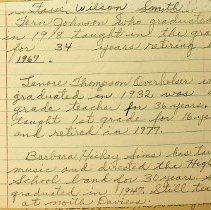 Facie Wilson Smith
Fern Johnson who graduated
in 1918 taught in the grade
for 34 years retiring
1967.
Lenore Thompson Overholser
graduated in 1932 was a
grade teacher for 36 years.
Taught 1st grade for 16 years
and retired in 1977.
Barbara Hickey Sims has
music and directed the High
School band for 30 years.
graduated in 1947 still
at north Daviess.